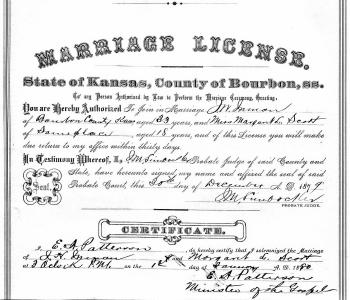 MARRIAGE LICENSE.
State of Kansas, County of Bourbon, ss.
To any Person Authorized by Law to Perform the Marriage Ceremony, Greeting:
You are Hereby Authorized To Join in Marriage J H Inman
of Bourbon County Kansas aged 23 years, and Miss Margarett Scott
of Same place aged 18 years, and of this License you will make
due return to my office within thirty days.
In Testimony Whereof, I, Probate Judge of said County and
State, have hereunto signed my name and affixed the seal of said
Seal. Probate Court, this 30th day of December A. D. 1879
PROBATE JUDGE.
CERTIFICATE.
I, E. A. Patterson do hereby certify that I solemnized the Marriage
of J. H. Inman and Scott
at o'clock P.M. on the 1st day of January A. D. 1880
E. A. Patterson
Minister of the Gospel